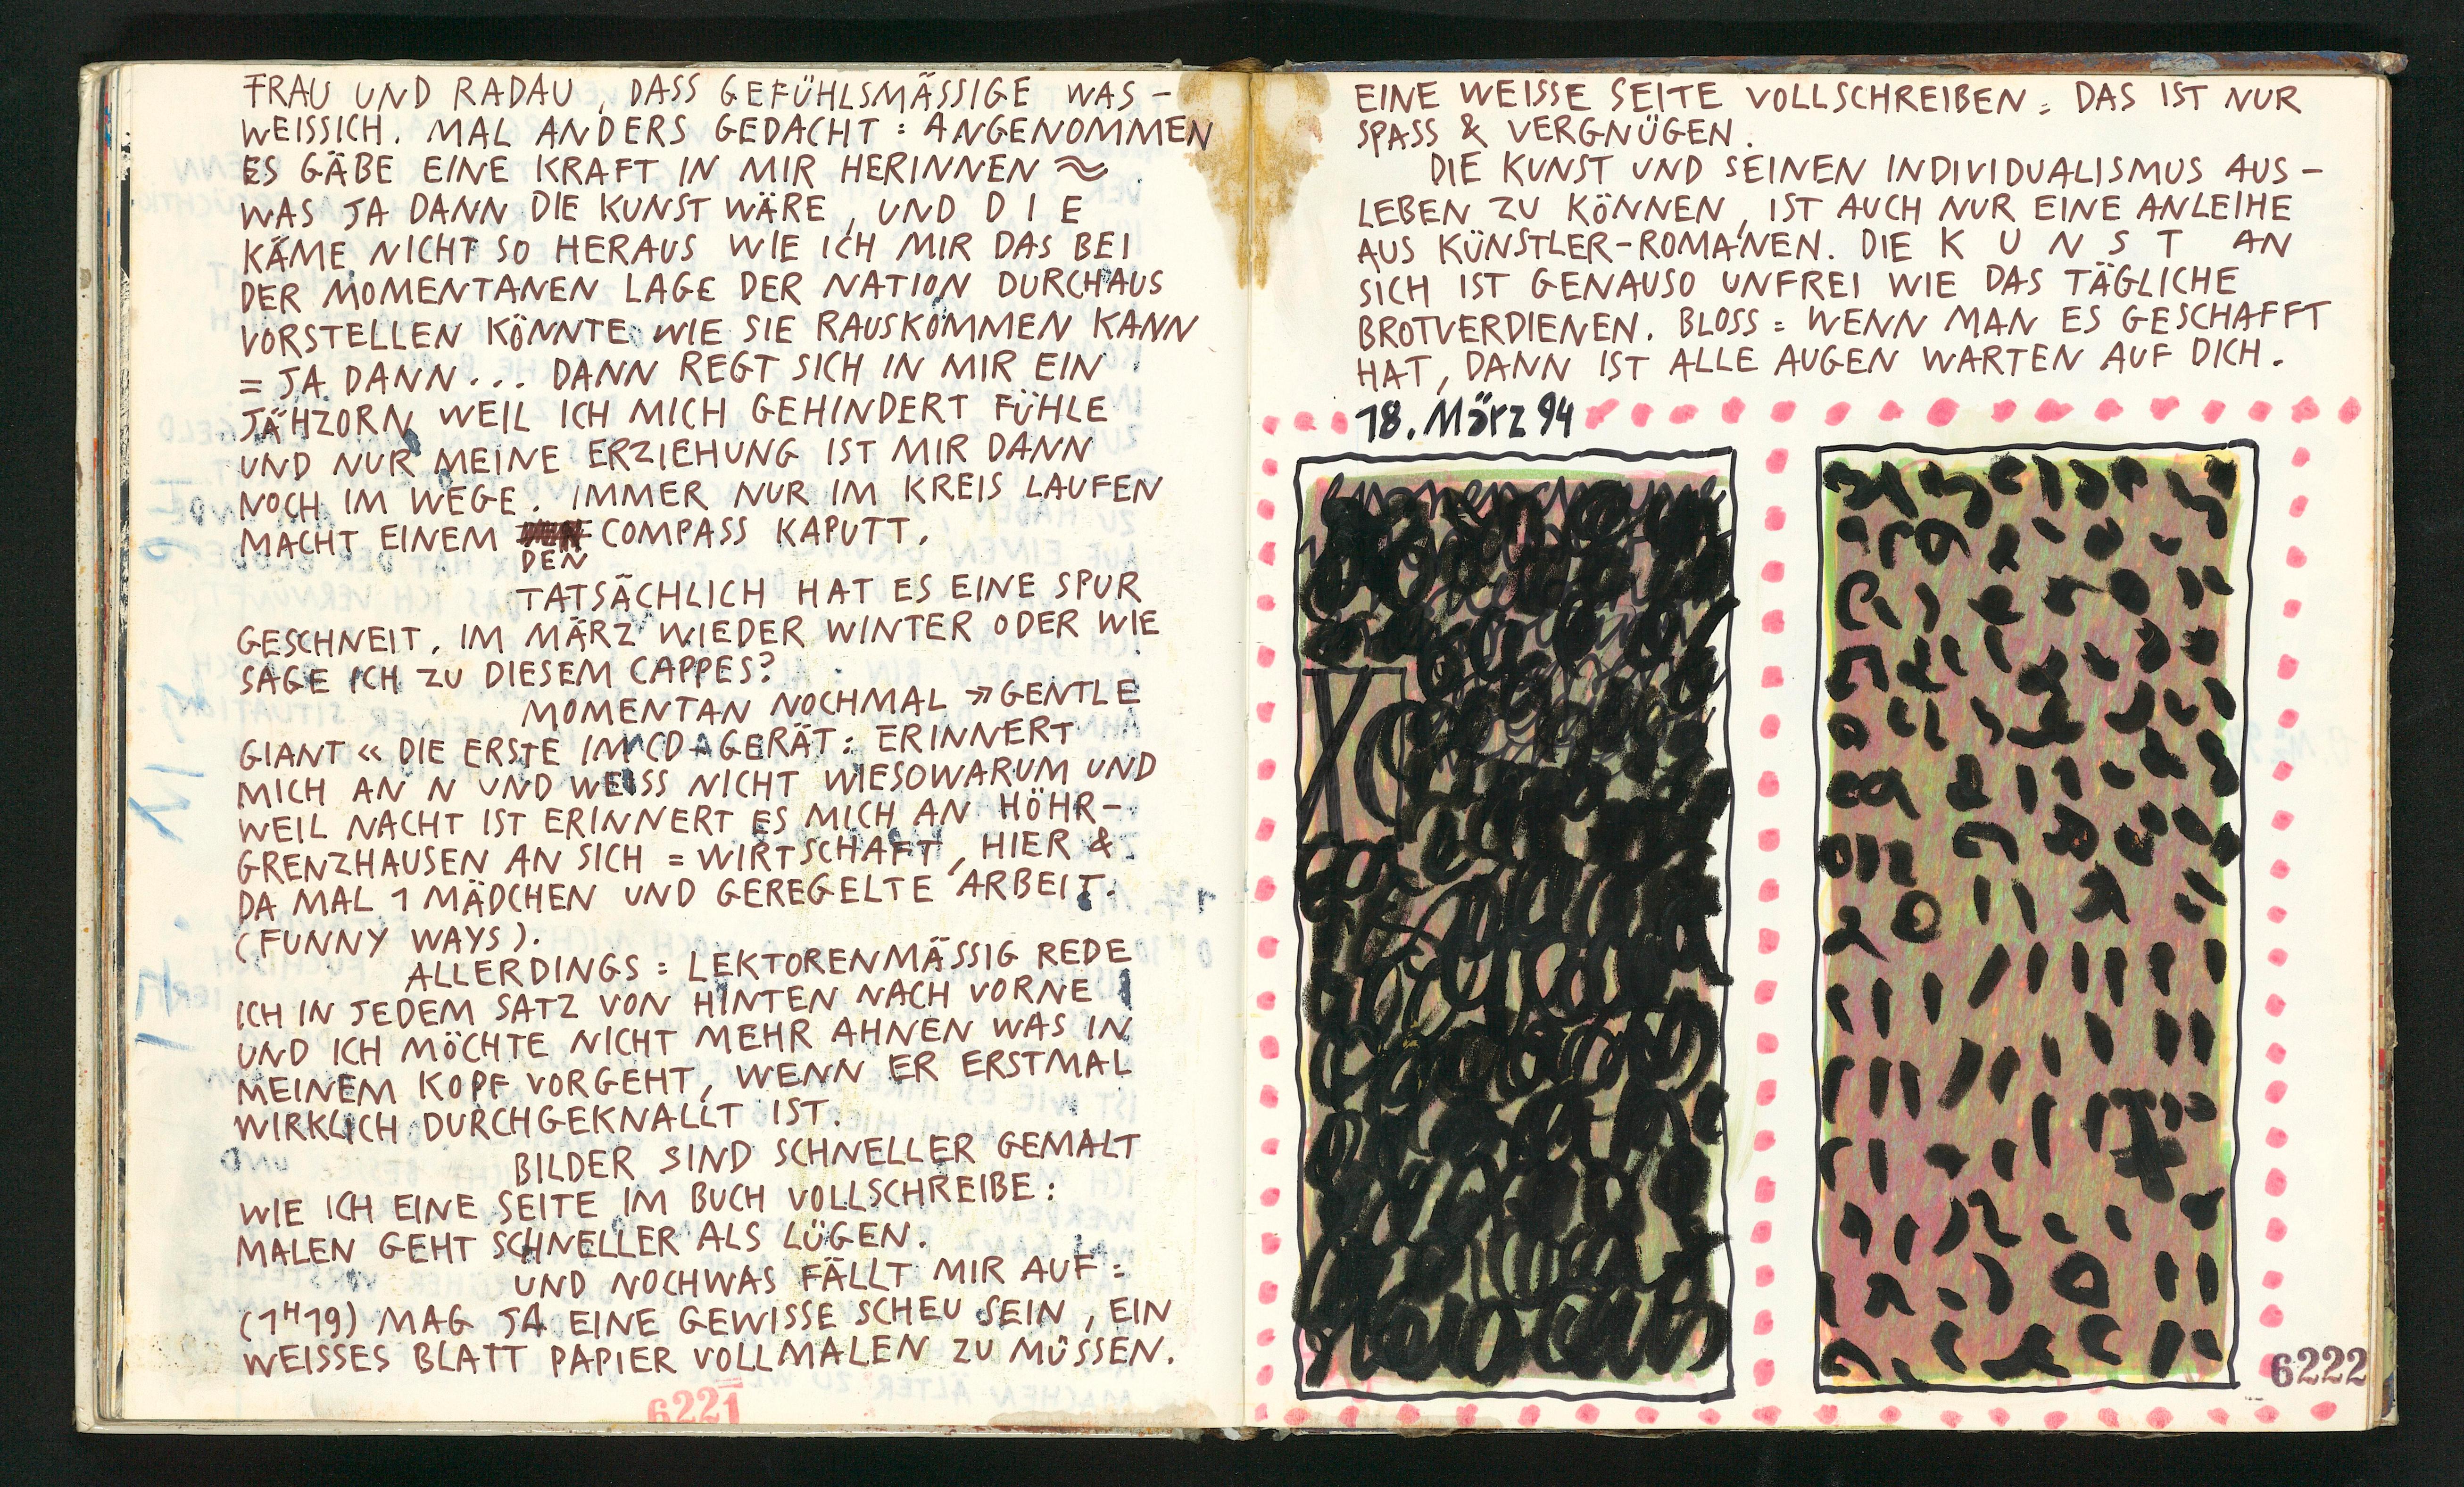 FRAU UND RADAU, DASS GEFÜHLSMÄSSIGE WAS-
WEISSICH. MAL ANDERS GEDACHT: ANGENOMMEN
ES GÄBE EINE KRAFT IN MIR HERINNEN ≈
WAS JA DANN DIE KUNST WÄRE, UND D I E
KÄME NICHT SO HERAUS WIE ICH MIR DAS BEI
DER MOMENTANEN LAGE DER NATION DURCHAUS
VORSTELLEN KÖNNTE WIE SIE RAUSKOMMEN KANN
= JA DANN... DANN REGT SICH IN MIR EIN
JÄHZORN WEIL ICH MICH GEHINDERT FÜHLE
UND NUR MEINE ERZIEHUNG IST MIR DANN
NOCH IM WEGE. IMMER NUR IM KREIS LAUFEN
MACHT EINEM COMPASS KAPUTT.
DEN
TATSÄCHLICH HAT ES EINE SPUR
GESCHNEIT. IM MÄRZ WIEDER WINTER ODER WIE
SAGE ICH ZU DIESEM CAPPES?
MOMENTAN NOCHMAL »GENTLE
GIANT« DIE ERSTE IM CD-GERÄT: ERINNERT
MICH AN N UND WEISS NICHT WIESOWARUM UND
WEIL NACHT IST ERINNERT ES MICH AN HÖHR-
GRENZHAUSEN AN SICH = WIRTSCHAFT, HIER &
DA MAL 1 MÄDCHEN UND GEREGELTE ARBEIT.
(FUNNY WAYS).
ALLERDINGS = LEKTORENMÄSSIG REDE
ICH IN JEDEM SATZ VON HINTEN NACH VORNE
UND ICH MÖCHTE NICHT MEHR AHNEN WAS IN
MEINEM KOPF VORGEHT, WENN ER ERSTMAL
WIRKLICH DURCHGEKNALLT IST.
BILDER SIND SCHNELLER GEMALT
WIE ICH EINE SEITE IM BUCH VOLLSCHREIBE:
MALEN GEHT SCHNELLER ALS LÜGEN.
UND NOCHWAS FÄLLT MIR AUF:
(1H19) MAG JA EINE GEWISSE SCHEU SEIN, EIN
WEISSES BLATT PAPIER VOLLMALEN ZU MÜSSEN.
6221
EINE WEISSE SEITE VOLLSCHREIBEN = DAS IST NUR
SPASS & VERGNÜGEN.
DIE KUNST UND SEINEN INDIVIDUALISMUS AUS-
LEBEN ZU KÖNNEN, IST AUCH NUR EINE ANLEIHE
AUS KÜNSTLER-ROMANEN. DIE K U N S T AN
SICH IST GENAUSO UNFREI WIE DAS TÄGLICHE
BROTVERDIENEN. BLOSS = WENN MAN ES GESCHAFFT
HAT, DANN IST ALLE AUGEN WARTEN AUF DICH.
18. März 94
6222